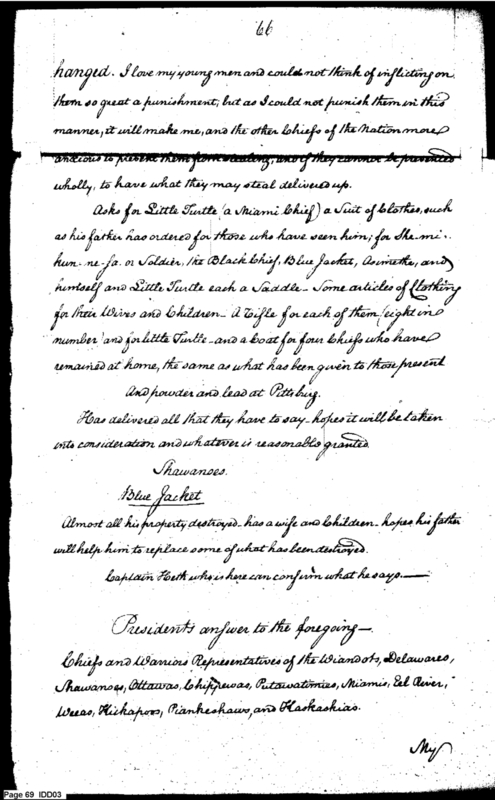 66
hanged. I love my young men and could not think of inflicting on
them so great a punishment, but as I could not punish them in this
manner, it will make me, and the other Chiefs of the Nation more
anxious to prevent them from stealing, and if they cannot be prevented
wholly, to have what they may steal delivered up.
Asks for Little Turtle (a Miami Chief) a Suit of Clothes, such
as his father has ordered for those who have seen him; for She-mi-
kun-ne-sa or Soldier, the Black Chief, Blue Jacket, Asimethe, and
himself and Little Turtle each a Saddle - Some articles of Clothing
for their Wives and Children - A Rifle for each of them (eight in
number) and for little Turtle - and a Coat for four Chiefs who have
remained at home, the same as what has been given to those present
And powder and lead at Pittsburg.
Has delivered all that they have to say - hopes it will be taken
into consideration and whatever is reasonable granted
Shawanoes.
Blue Jacket
Almost all his property destroyed - has a wife and Children - hopes his father
will help him to replace some of what has been destroyed.
Captain Heth who is here can confirm what he says. —
Presidents answer to the foregoing —.
Chiefs and Warriors Representatives of the Wiandots, Delawares,
Shawanoes, Ottawas, Chippewas, Putawatimies, Miamis, Eel River,
Weeas, Kickapoos, Piankeshaws, and Kaskaskias.
My
Page 69 IDD03